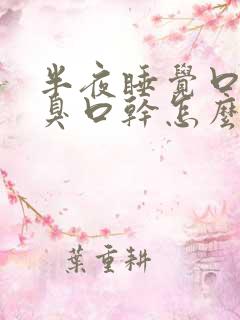 半夜睡覺口
臭口幹怎麼
葉重耕